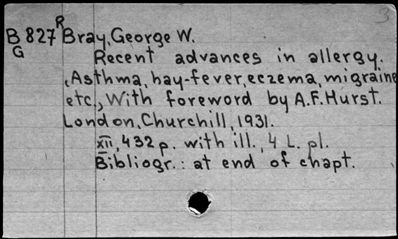 B 827 R Bray, George W.
G Recent advances in allergy.
(Asthma, hay-fever, eczema, migraine
etc., With foreword by A.F. Hurst.
London, Churchill, 1931.
XII, 432 p. with ill., 4 L. pl.
Bibliogr.: at end of chapt.